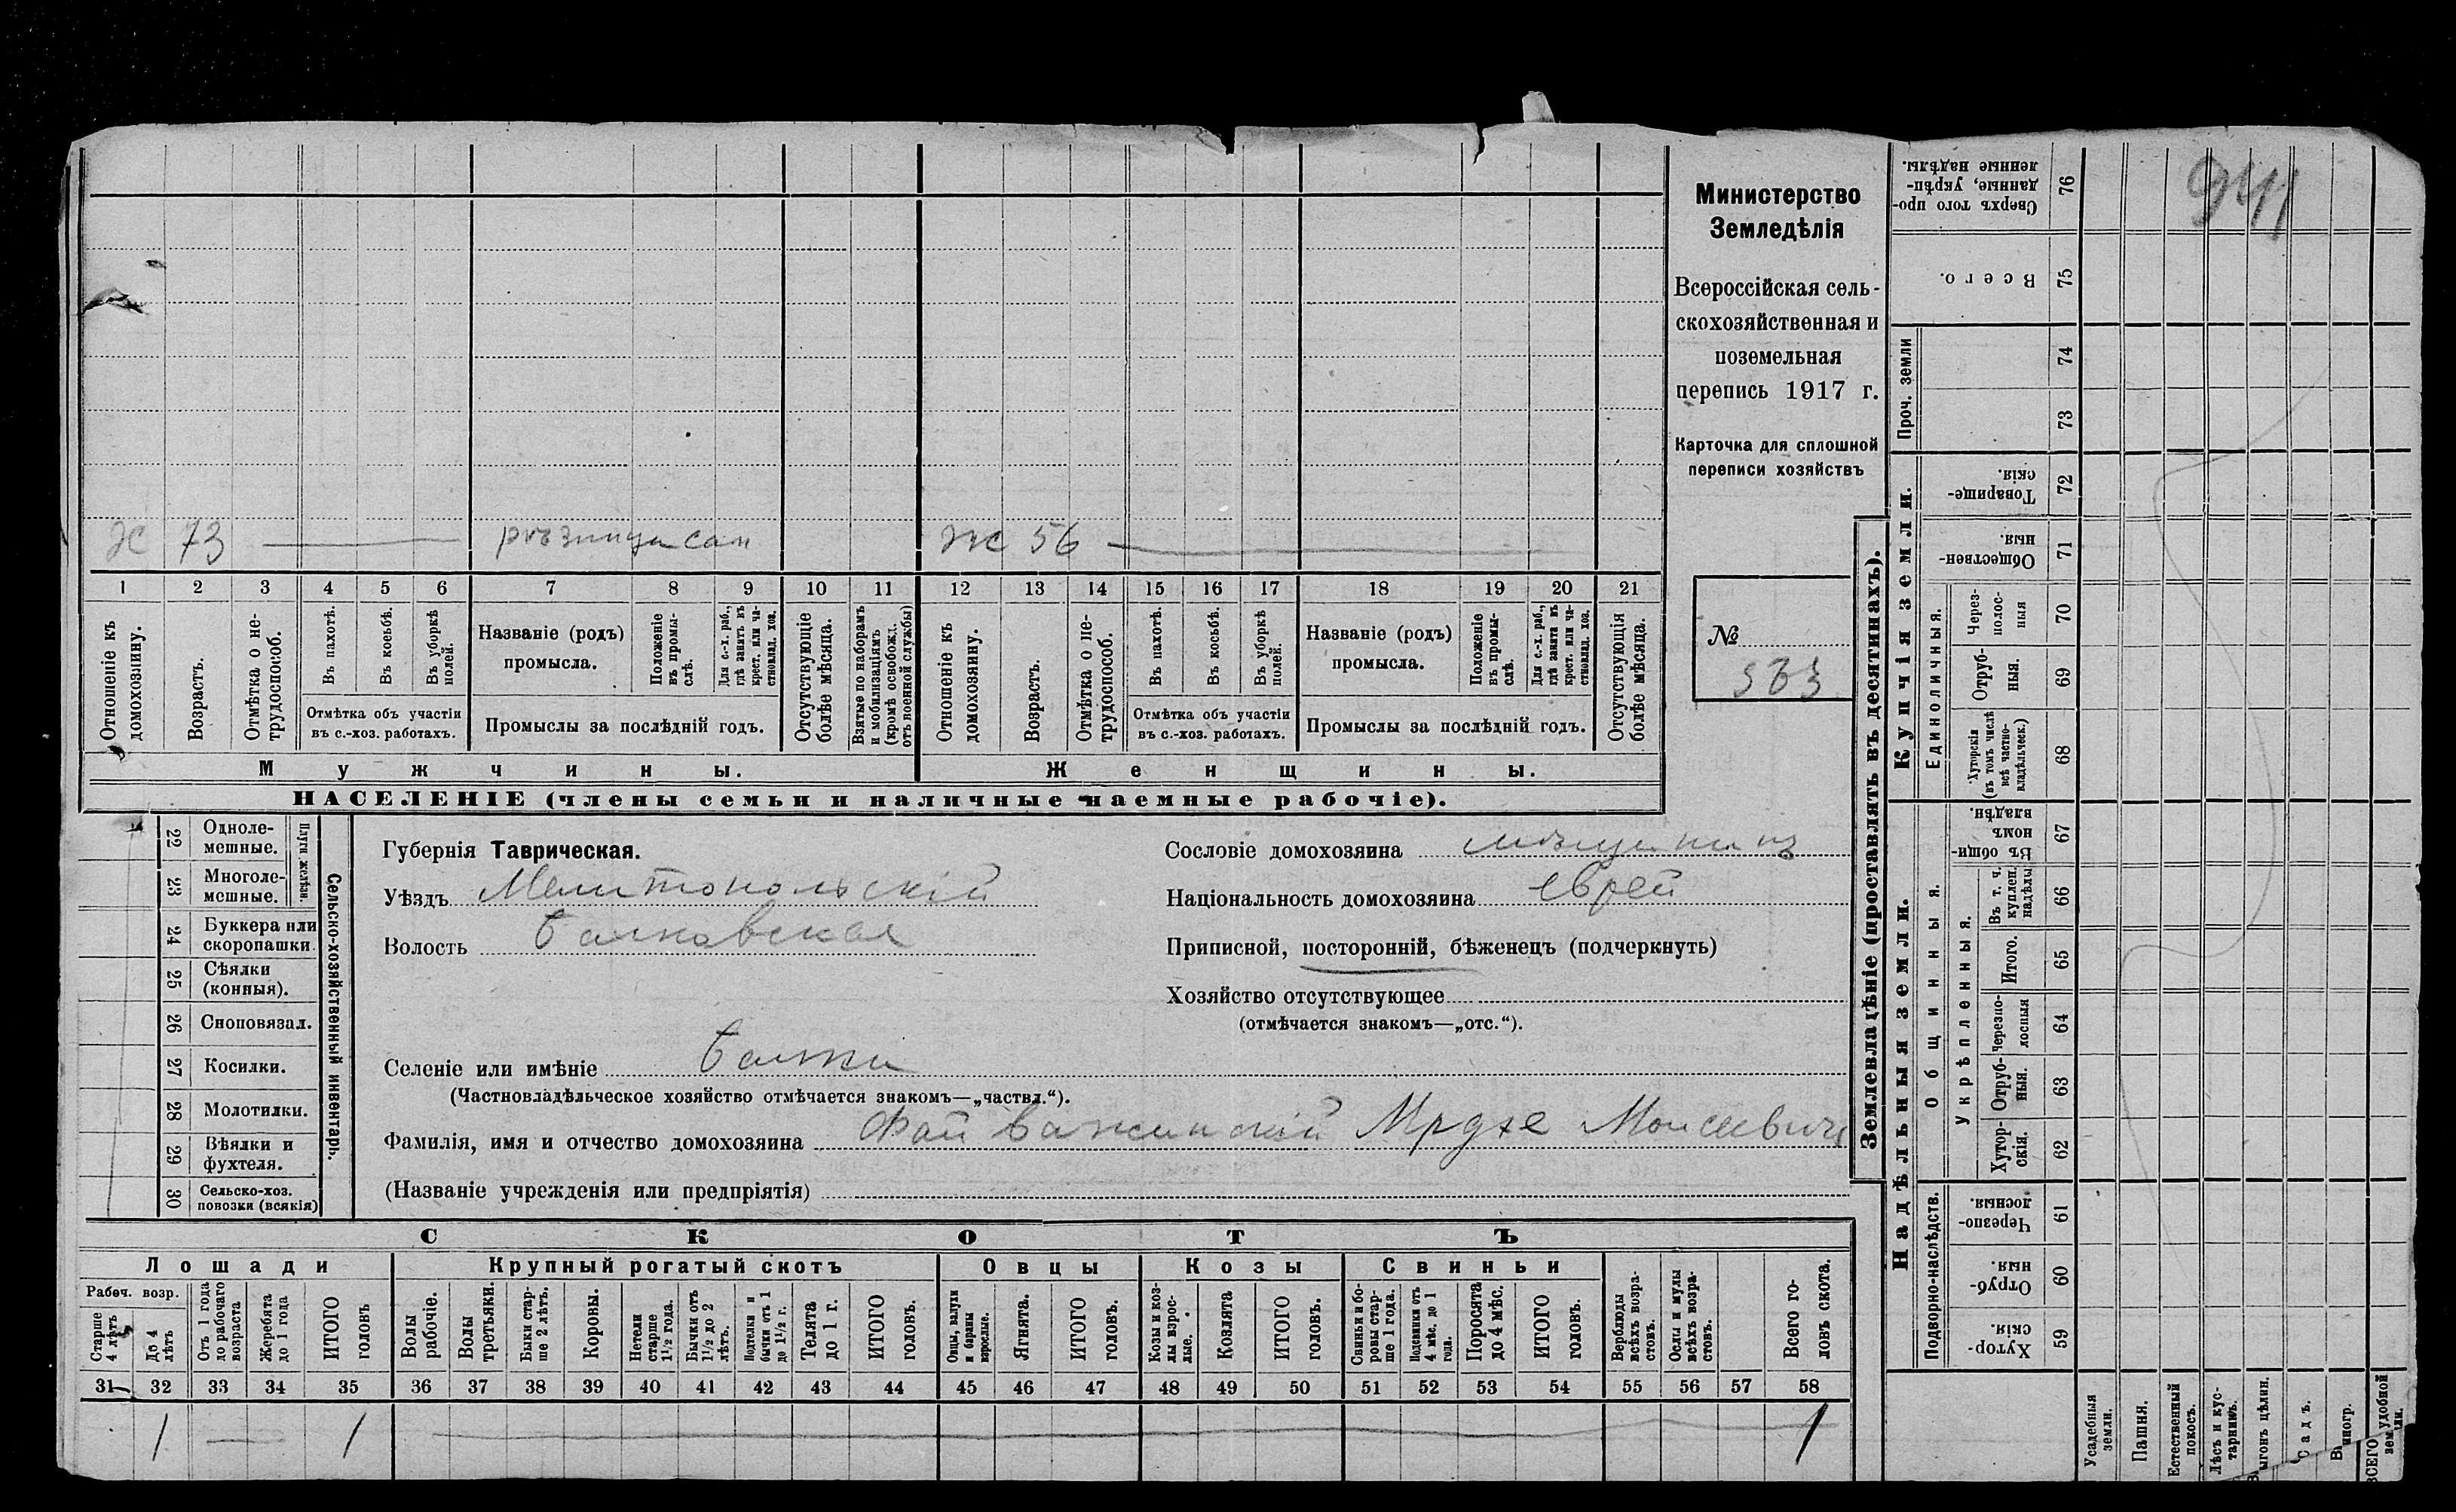 941
Министерство
Земледѣлія
Всероссійская сель-
скохозяйственная и
поземельная
перепись 1917 г.
Карточка для сплошной
переписи хозяйствъ
№
х 73 рѣзница сам
ж 56
1 2 3 4 5 6 7 8 9 10 11 12 13 14 15 16 17 18 19 20 21
Отношеніе къ домохозяину.
Возрастъ.
Отмѣтка о не-трудоспособ.
Въ пахотѣ.
Въ косьбѣ.
Въ уборкѣ полей.
Отмѣтка объ участіи
въ с.-хоз. работахъ.
Названіе (родъ)
промысла.
Положеніе въ промы-слѣ.
Для с.-х. раб., гдѣ занятъ въ крест. или ча-стновлад. хоз.
Промыслы за послѣдній годъ.
Отсутствующіе болѣе мѣсяца.
Взятые по наборамъ и мобилизаціямъ (кромѣ освобожд. отъ военной службы)
Отношеніе къ домохозяину.
Возрастъ.
Отмѣтка о не-трудоспособ.
Въ пахотѣ.
Въ косьбѣ.
Въ уборкѣ полей.
Отмѣтка объ участіи
въ с.-хоз. работахъ.
Названіе (родъ)
промысла.
Положеніе въ промы-слѣ.
Для с.-х. раб., гдѣ занята въ крест. или ча-стновлад. хоз.
Промыслы за послѣдній годъ.
Отсутствующія болѣе мѣсяца.
Мужчины.
Женщины.
НАСЕЛЕНІЕ (члены семьи и наличные наемные рабочіе).
22 Одноле-мешные.
23 Многоле-мешные.
Плуги желѣзн.
24 Буккера или скоропашки.
25 Сѣялки (конныя).
26 Сноповязал.
27 Косилки.
28 Молотилки.
29 Вѣялки и фухтеля.
30 Сельско-хоз. повозки (всякія)
Сельско-хозяйственный инвентарь.
Губернія Таврическая.
Уѣздъ Мелитопольскій
Волость Балковская
Селеніе или имѣніе Балки
(Частновладѣльческое хозяйство отмѣчается знакомъ—„частвл.“).
Фамилія, имя и отчество домохозяина Мрдхе Моисеевичъ
(Названіе учрежденія или предпріятія)
Сословіе домохозяина мѣщанинъ
Національность домохозяина еврей
Приписной, посторонній, бѣженецъ (подчеркнуть)
Хозяйство отсутствующее
(отмѣчается знакомъ—„отс.“).
СКОТЪ
Лошади
Крупный рогатый скотъ
Овцы
Козы
Свиньи
Рабоч. возр.
Старше 4 лѣтъ
До 4 лѣтъ
Отъ 1 года до рабочаго возраста
Жеребята до 1 года
ИТОГО головъ
Волы рабочіе.
Волы третьяки.
Быки стар-ше 2 лѣтъ.
Коровы.
Нетели старше 1½ года.
Бычки отъ 1½ до 2 лѣтъ.
Подтелки и бычки отъ 1 до 1½ г.
Телята до 1 г.
ИТОГО головъ.
Овцы, валухи и бараны взрослые.
Ягнята.
ИТОГО головъ.
Козы и коз-лы взрос-лые.
Козлята
ИТОГО головъ.
Свиньи и бо-ровы стар-ше 1 года.
Подсвинки отъ 4 мѣс. до 1 года.
Поросята до 4 мѣс.
ИТОГО головъ.
Верблюды всѣхъ возра-стовъ.
Ослы и мулы всѣхъ возра-стовъ.
Всего го-ловъ скота.
31 32 33 34 35 36 37 38 39 40 41 42 43 44 45 46 47 48 49 50 51 52 53 54 55 56 57 58
1 1 1
Землевладѣніе (проставлять въ десятинахъ).
Купчія земли.
Надѣльныя земли.
Сверхъ того про-данные, укрѣп-ленные надѣлы. 76
Всего. 75
Проч. земли
74
73
Товарище-скія. 72
Обществен-ныя. 71
Единоличныя.
Через-полос-ныя 70
Отруб-ныя. 69
Хуторскія (въ томъ числѣ всѣ частно-владѣльческ.) 68
Общинныя.
Въ общи-номъ владѣн. 67
Укрѣпленныя.
Въ т. ч. куплен. надѣлы 66
Итого. 65
Черезпо-лосныя 64
Отруб-ныя. 63
Хутор-скія. 62
Подворно-наслѣдств.
Черезпо-лосныя. 61
Отруб-ныя. 60
Хутор-скія. 59
Усадебныя земли.
Пашня.
Естественный покосъ.
Лѣсъ и кус-тарникъ.
Выгонъ цѣлин.
Садъ.
Виногр.
ВСЕГО удобной земли.